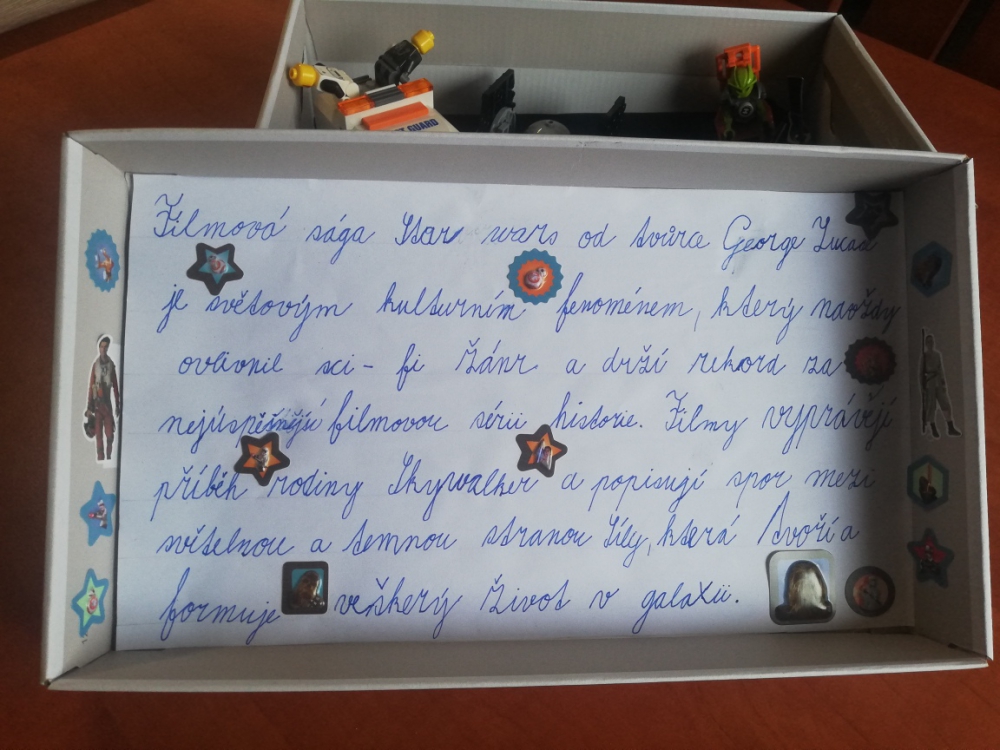 GUARD
Filmová sága Star wars od tvůrce George Lucas
je světovým kulturním fenoménem, který navždy
ovlivnil sci-fi žánr a drží rekord za
nejúspěšnější filmovou sérii historie. Filmy vyprávějí
příběh rodiny Skywalker a popisují spor mezi
světelnou a temnou stranou Síly, která tvoří a
formuje veškerý život v galaxii.